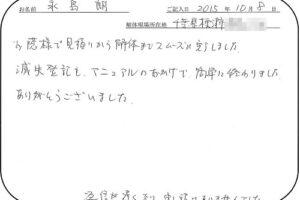 お名前 永島 朗 ご記入日 2015年10月8日
解体現場所在地 千葉県
お陰様で見積りから解体までスムーズに完了しました
滅失登記も、マニュアルのおかげで簡単に終わりました
ありがとうございました。
返信が遅くなり、申し訳ありませんでした